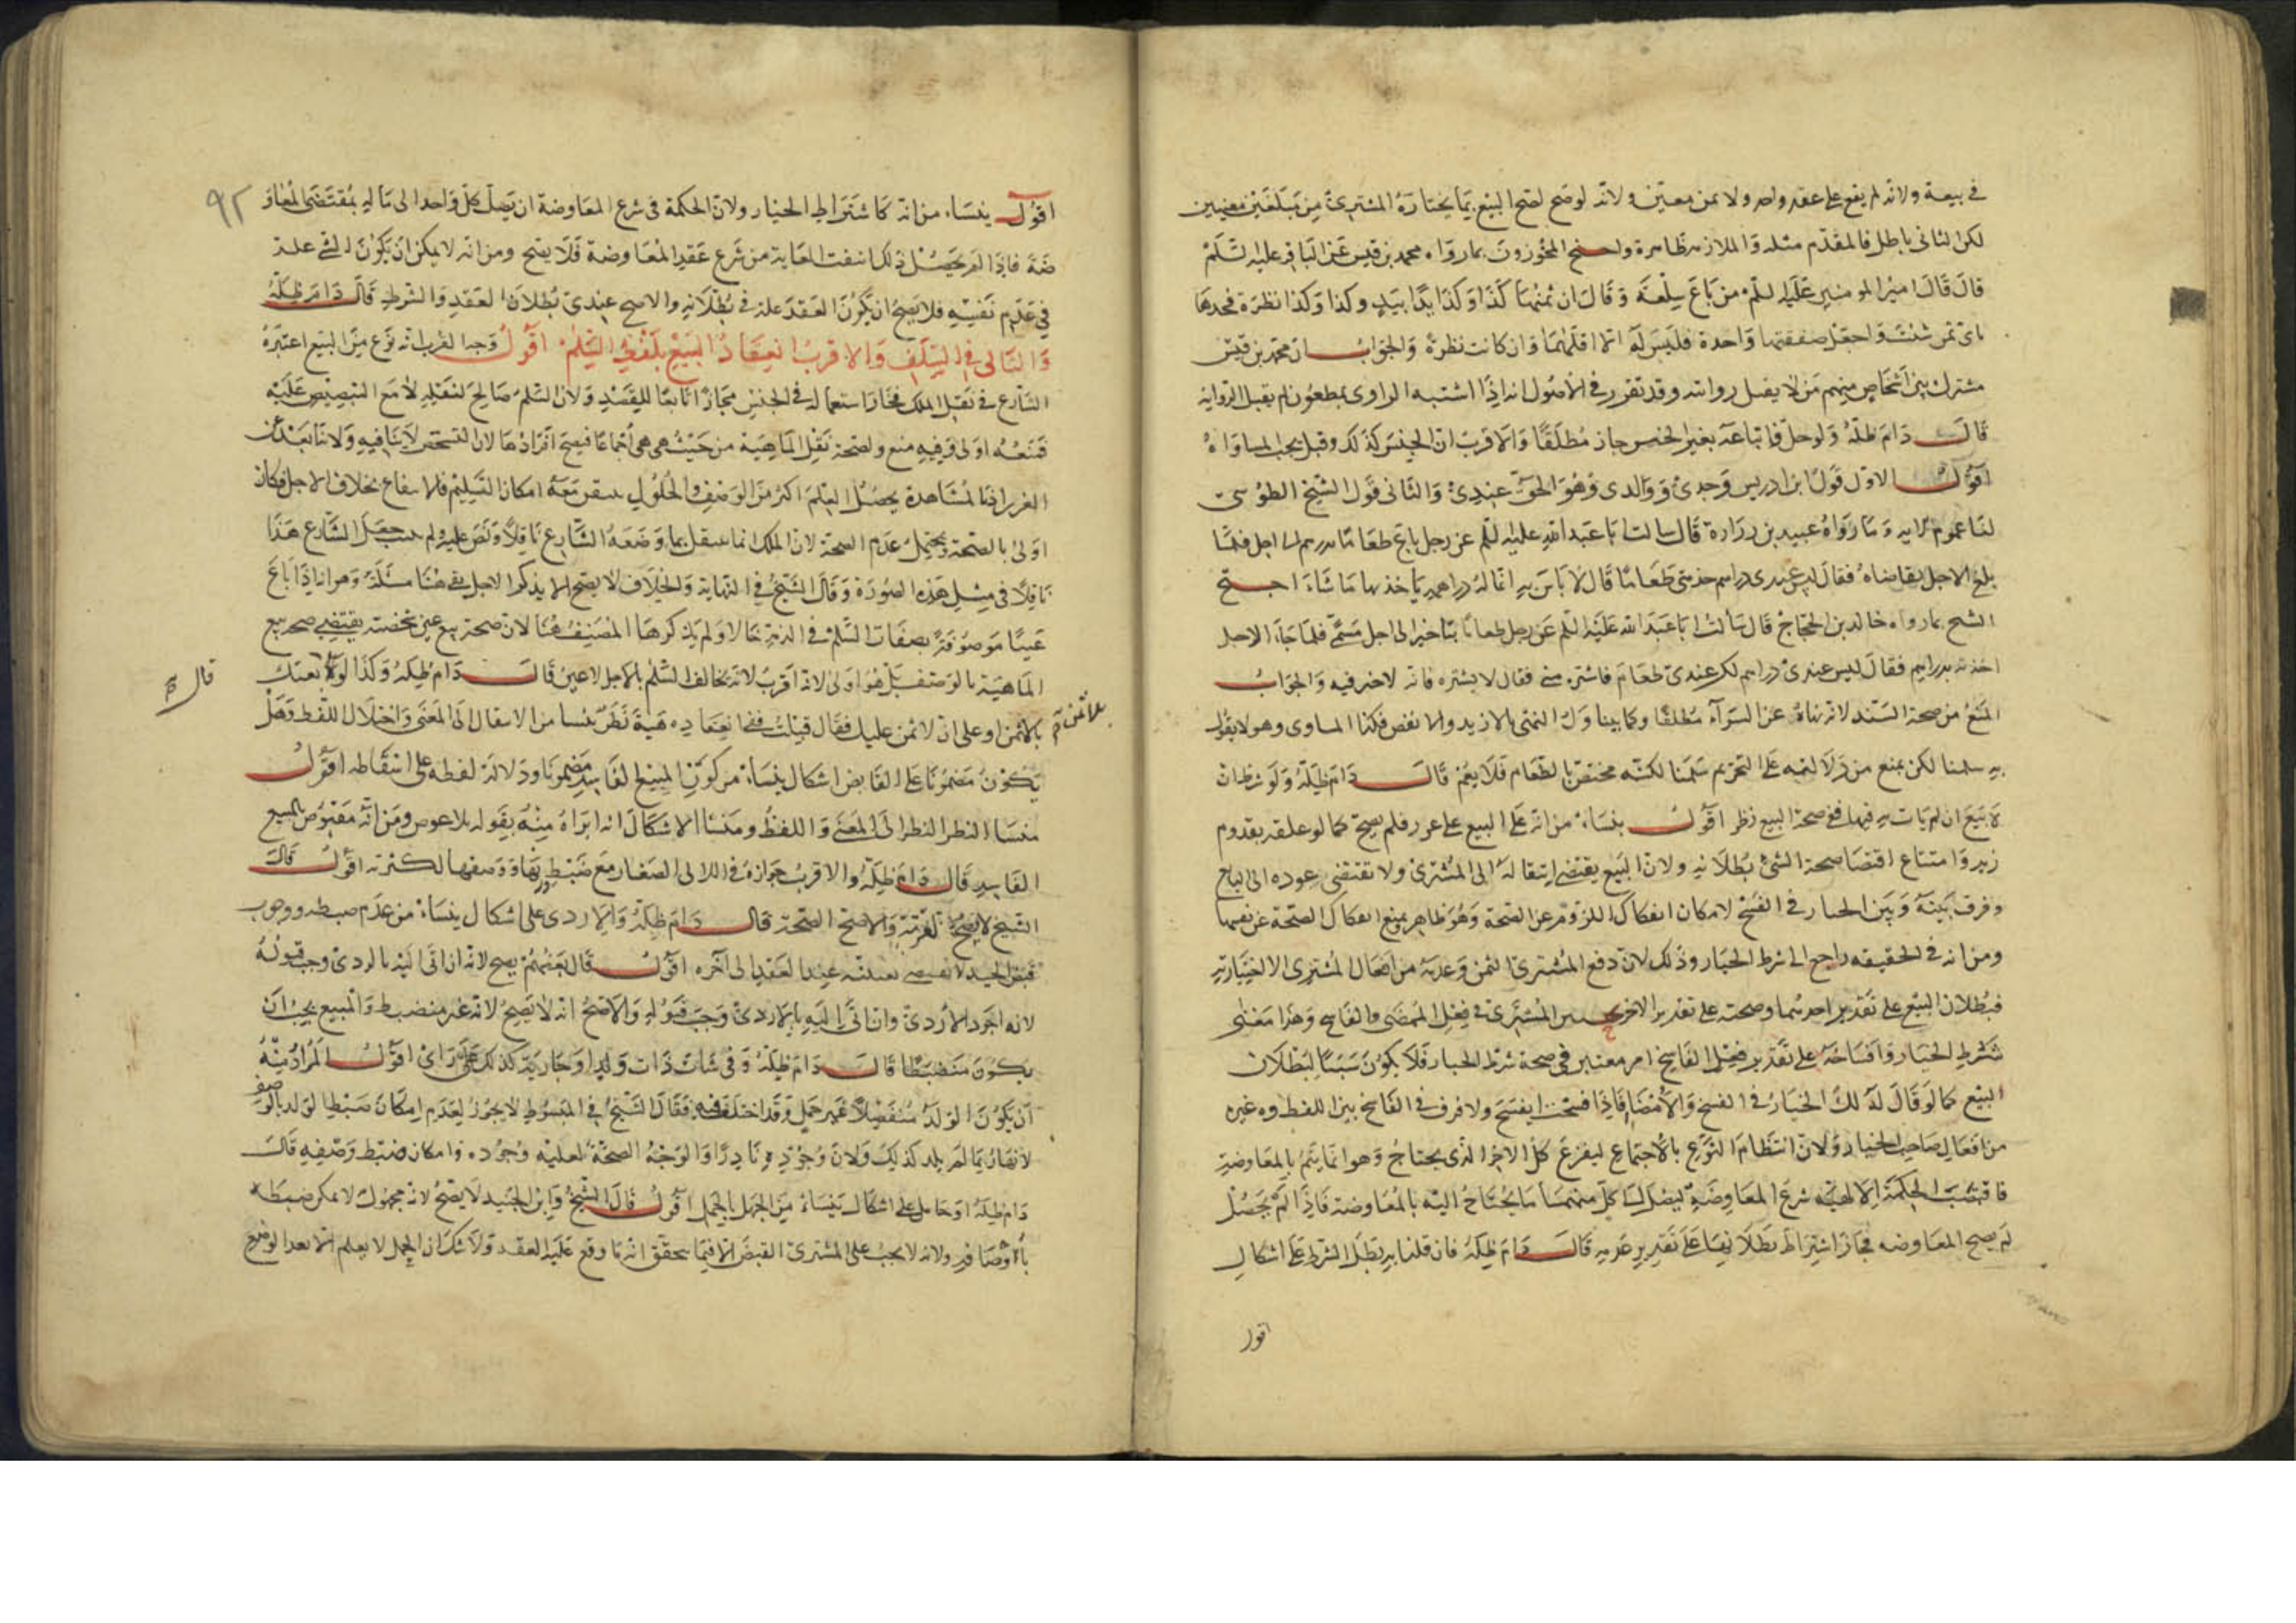 في بيعة ولانه لم يقع على عقد واحد ولا ثمن معين ولانه لو صح لصح البيع بما يختاره المشتري من مبلغين معينين
لكن الثاني باطل فالمقدم مثله والملازمة ظاهرة واحتج المجوزون بما رواه محمد بن قيس عن الباقر عليه السلم
قال قال امير المومنين عليه السلم من باع سلعة وقال ان ثمنها كذا وكذا يدا بيد وكذا وكذا نظرة فخذها
باي ثمن شئت واجعل صفقتها واحدة فليس له الا اقلهما وان كانت نظرة والجواب ان محمد بن قيس
مشترك بين اشخاص منهم من لا يقبل روايته وقد تقرر في الاصول انه اذا اشتبه الراوي بمطعون لم يقبل الرواية
قال دام ظله ولو حل فابتاعه بغير الجنس جاز مطلقا والاقرب ان الجنس كذلك وقيل يجب المساواة
اقول الاول قول ابن ادريس وجدي ووالدي وهو الحق عندي والثاني قول الشيخ الطوسي
لنا عموم الاية وما رواه عبيد بن زرارة قال سالت ابا عبد الله عليه السلم عن رجل باع طعاما بدرهم الى اجل فلما
بلغ الاجل تقاضاه فقال ليس عندي دراهم خذ مني طعاما قال لا باس به انما له دراهمه ياخذ بها ما شاء احتج
الشيخ بما رواه خالد بن الحجاج قال سالت ابا عبد الله عليه السلم عن رجل طعاما بتاخير الى اجل مسمى فلما جاء الاجل
اخذته بدراهم فقال ليس عندي دراهم لكن عندي طعام فاشتره مني فقال لا يشتره فانه لا خير فيه والجواب
المنع من صحة السند لانه نهاه عن الشراء مطلقا وكما يتناول النهي الازيد والانقص فكذا المساوي وهو لا يقول
به سلمنا لكن يمنع من دلالة النهي على التحريم سلمنا لكنه مختص بالطعام فلا يعم قال دام ظله ولو شرط ان
لا بيع ان لم يات به ففي صحة البيع نظر اقول ينشاء من انه على البيع على غرر فلم يصح كما لو علقه بقدوم
زيد وامتناع اقتضا صحة الشئ بطلانه ولان البيع يقتضي انتقاله الى المشتري ولا تقتضي عوده الى البايع
وفرق بينه وبين الخيار في الفسخ لامكان انفكاك اللزوم عن الصحة وهو ظاهر ويمنع انفكاك الصحة عن نفسها
ومن انه في الحقيقه راجع الى شرط الخيار وذلك لان دفع المشتري الثمن وعدمه من افعال المشتري الاختيارية
فبطلان البيع على تقدير احدهما وصحته على تقدير الاخر المشتري في فعل الممضي والفاسخ وهذا معنى
شرط الخيار وانفساخه على تقدير فعل الفاسخ امر معتبر في صحة شرط الخيار فلا يكون سببا لبطلان
البيع كما لو قال له لك الخيار في الفسخ والامضا فاذا فسخت ينفسخ ولا فرق في الفاسخ بين اللفظ وغيره
من افعال صاحب الخيار ولان انتظام النوع بالاجتماع ليفرغ كل الاخر الذي يحتاج وهو انما يتم بالمعاوضة
فاقتضت الحكمة الالهية شرع المعاوضة ليصل الى كل منهما ما يحتاج اليه بالمعاوضة فاذا لم يحصل
لم يصح المعاوضه فجاز اشتراط بطلانها على تقدير عدمه قال دام ظله فان قلنا به بطل الشرط على اشكال
اقول
٩٢
اقول ينشاء من انه كاشتراط الخيار ولان الحكمة في شرع المعاوضة ان يصل كل واحد الى ماله بمقتضى المعاو
ضة فاذا لم يحصل ذلك انتفت الغاية من شرع عقد المعاوضة فلا يصح ومن انه لا يمكن ان يكون الشئ علة
في عدم نفسه فلا يصح ان يكون العقد علة في بطلانه والاصح عندي بطلان العقد والشرط قال دام ظله
والتالي في السلف والاقرب انعقاد البيع بلفظ السلم اقول وجه القرب انه نوع من البيع اعتبره
الشارع في نقل الملك فجاز استعماله في الجنس مجازا تابعا للقصد ولان السلم صالح لنقله لا مع التنصيص عليه
فمنعه اولى وفيه منع ولصحة نقل الماهية من حيث هي هي اجماعا فيصح افرادها لان التشخص لا ينافيه ولانا بعد عن
الغرر اذ المشاهدة يحصل العلم اكثر من الوصف والحلول معه امكان التسليم فلا بخلاف الاجل فكان
اولى بالصحة ويحتمل عدم الصحة لان الملك انما ينتقل بما وضعه الشارع ناقلا ونص عليه ولم جعل الشارع هذا
ناقلا في مثل هذه الصورة وقال الشيخ في النهاية والخلاف لا يصح الا يذكر الاجل بقي هنا مسئلة وهو انه اذا باع
عينا موصوفة بصفات السلم في الذمة حالا ولم يذكرها المصنف هنا لان صحة بيع عين شخصية يقتضي صحة بيع
الماهية بالوصف بل هو اولى لانه اقرب لانه يخالف السلم بالاجل لا عين قال دام ظله وكذا لو قال بعتك
بلا ثمن او على ان لا ثمن عليك فقال قبلت ففي انعقاده هبة نظر ينشا من الانتقال الى المعنى واختلال اللفظ وهل
يكون مضمونا على القابض اشكال ينشاء من كون المبيع الفاسد مضمونا ودلالة لفظه على اسقاطه اقول
منشا النظر النظر الى المعنى واللفظ ومنشا الاشكال انه ابراه منه بقوله بلا عوض ومن انه مقبوض بالبيع
الفاسد قال دام ظله والاقرب جوازه في اللالي الصغار مع ضبط وزنها ووصفها لكثرته اقول قال
الشيخ لا يصح والاصح الصحة قال دام ظله والاردى على اشكال ينشاء من عدم ضبطه ووجوب
قبض الجيد عند العقد الى اخره اقول قال بعضهم يصح لانه ان اتى اليه بالردي وجب قبوله
لانه اجود الاردي وان اتى اليه بالاردي وجب قبوله والاصح انه لا يصح لانه غير منضبط والمبيع يجب ان
يكون منضبطا قال دام ظله وفي شات ذات ولد او جارية كذلك على راي اقول المراد منه
ان يكون الولد منفصلا غير حمل وقد اختلف فيه فقال الشيخ في المبسوط لا يجوز لعدم امكان ضبط الولد بالوصف
لانها ربما لم يلد كذلك ولان وجوده نادرا والوجه الصحة لغلبة وجوده وامكان ضبط وصفه قال
دام ظله او حامل على اشكال ينشاء من الجهل بالحمل اقول قال الشيخ وابن الجنيد لا يصح لانه مجهول لا يمكن ضبطه
باوصافه ولانه لا يجب على المشتري القبض الا فيما يحقق انه ما وقع عليه العقد ولا شك ان الحمل لا يعلم الا بعد الوضع
بلا ثمن